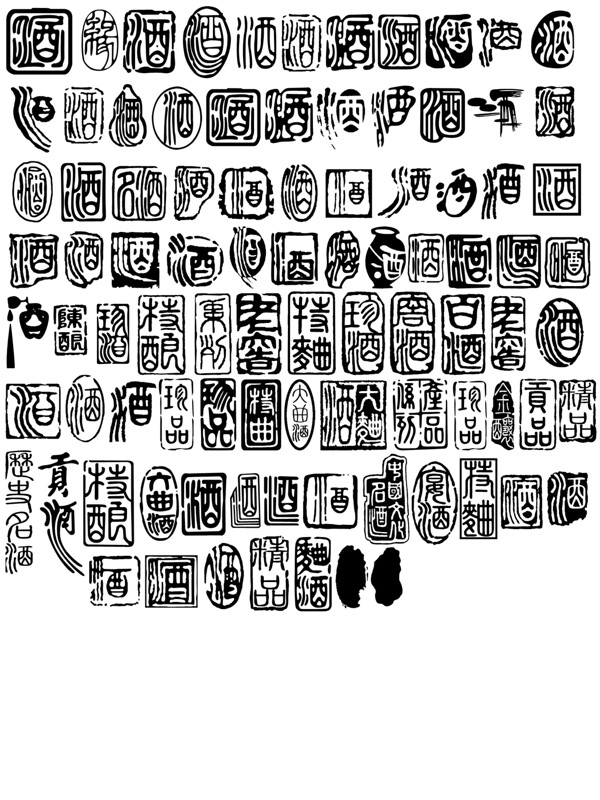 酒 酒 酒 酒 酒 酒 酒 酒 酒 酒
酒 酒 酒 酒 酒 酒 酒 酒 酒 酒 酒
酒 酒 名酒 酒 酒 酒 酒 酒 酒 酒 酒
酒 酒 酒 酒 酒 酒 酒 酒 酒 酒 酒 酒
酒 陳釀 珍酒 特釀 老窖 特麯 珍酒 窖酒 白酒 老窖 酒
酒 酒 酒 珍品 珍品 特曲 大曲酒 酒 大麯 係列 產品 珍品 金釀 貢品 精品
歷史名酒 貢酒 特釀 大曲酒 酒 酒 酒 酒 名酒 宴酒 特麯 酒 酒
酒 酒 酒 精品 麯酒